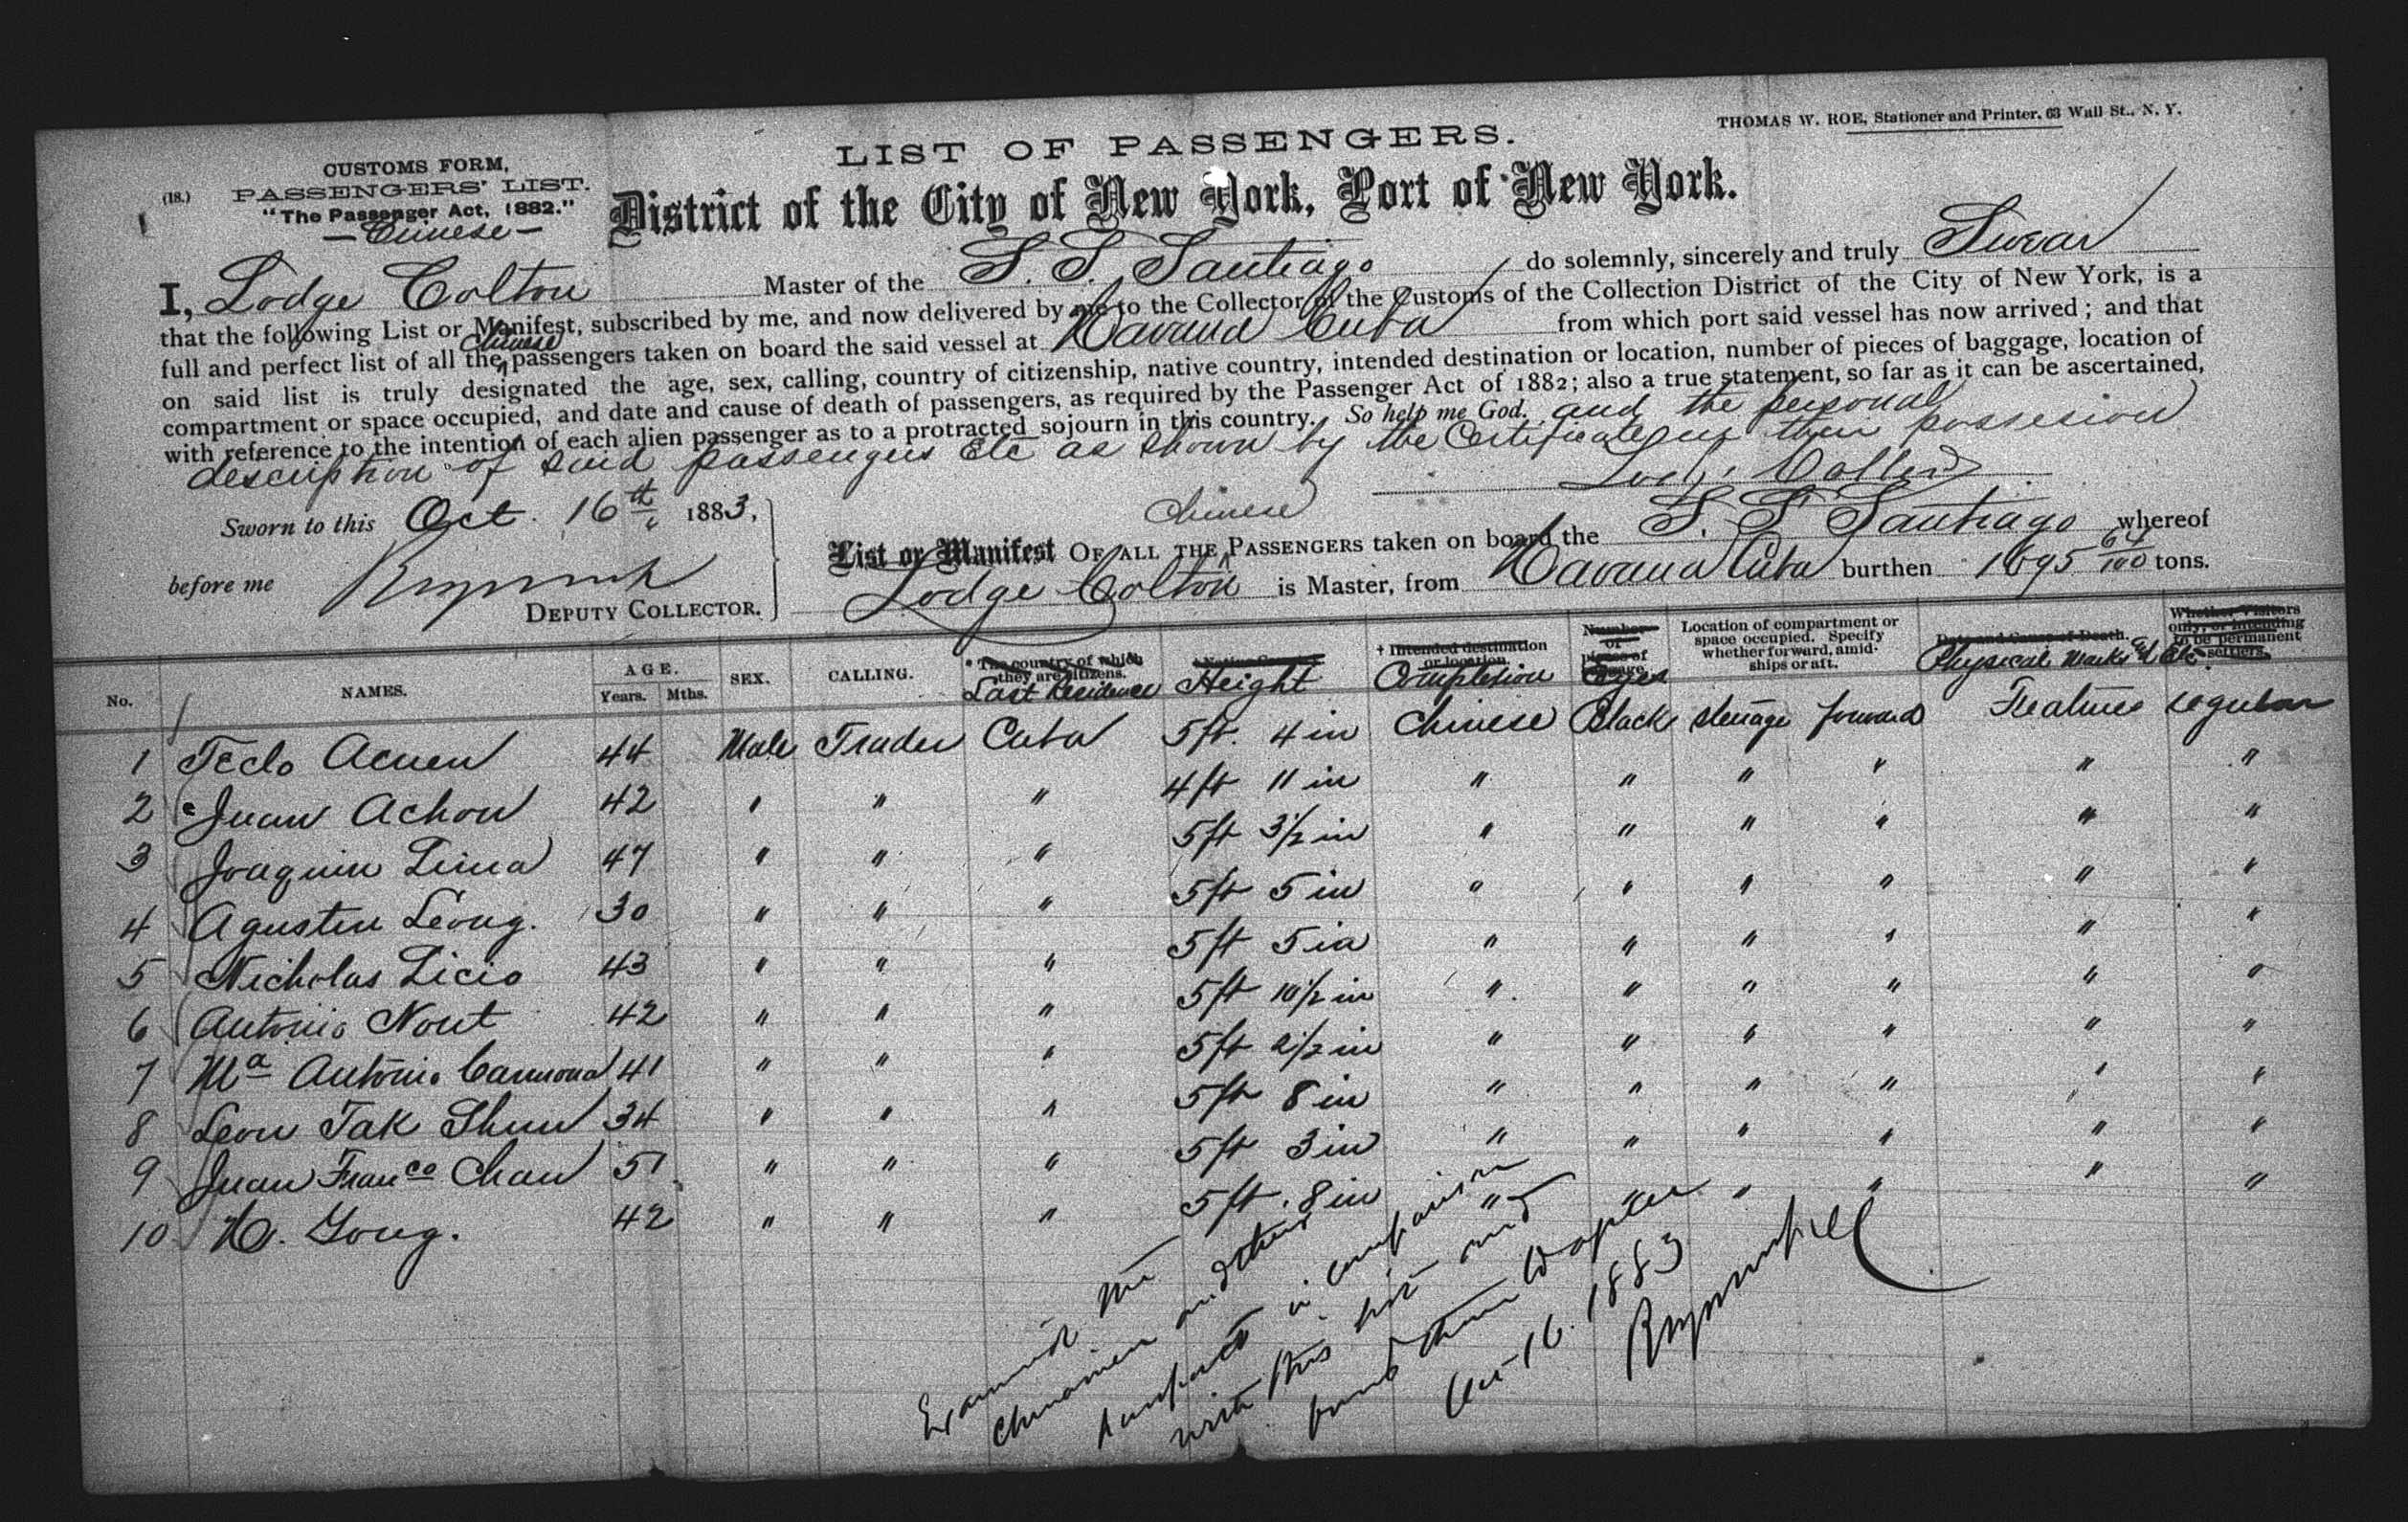 THOMAS W. ROE, Stationer and Printer, 63 Wall St., N. Y.
LIST OF PASSENGERS.
(18.)
CUSTOMS FORM,
PASSENGERS' LIST.
"The Passenger Act, 1882."
— Chinese —
District of the City of New York, Port of New York.
I, Lodge Colton Master of the S. S. Santiago do solemnly, sincerely and truly Swear
that the following List or Manifest, subscribed by me, and now delivered by me to the Collector of the Customs of the Collection District of the City of New York, is a
full and perfect list of all the Chinese passengers taken on board the said vessel at Havana Cuba from which port said vessel has now arrived; and that
on said list is truly designated the age, sex, calling, country of citizenship, native country, intended destination or location, number of pieces of baggage, location of
compartment or space occupied, and date and cause of death of passengers, as required by the Passenger Act of 1882; also a true statement, so far as it can be ascertained,
with reference to the intention of each alien passenger as to a protracted sojourn in this country. So help me God. and the personal
description of said passengers Etc as shown by the Certificate in their possesion
Lodge Colton
Sworn to this Oct. 16th 1883,
before me
DEPUTY COLLECTOR.
List or Manifest OF ALL THE Chinese PASSENGERS taken on board the S. S. Santiago whereof
Lodge Colton is Master, from Havana Cuba burthen 1695 64/100 tons.
No. NAMES. AGE. Years. Mths. SEX. CALLING. * The country of which they are citizens. Last Residence Native Country Height † Intended destination or location. Complexion Number of pieces of baggage. Eyes Location of compartment or space occupied. Specify whether forward, amidships or aft. Date and Cause of Death. Physical Marks Whether Visitors only, or intending to be permanent settlers. Etc.
1 Teclo Acuen 44 Male Trader Cuba 5ft. 4 in Chinese Black steerage forward Features regular
2 Juan Achon 42 " " " 4ft 11 in " " " " " "
3 Joaquin Lima 47 " " " 5ft 3½ in " " " " " "
4 Agusten Leong. 30 " " " 5ft 5 in " " " " " "
5 Nicholas Licio 43 " " " 5ft 5 in " " " " " "
6 Antonio Nout 42 " " " 5ft 10½ in " " " " " "
7 Ma Antonio Carmona 41 " " " 5ft 2½ in " " " " " "
8 Leon Tak Shun 34 " " " 5ft 8 in " " " " " "
9 Juan Franco Chan 51 " " " 5ft 3 in " " " " " "
10 H. Yong. 42 " " " 5ft. 8 in " " " " " "
Examined the
Chinamen and their
passports in comparison
with this list and
found them proper
Oct 16. 1883